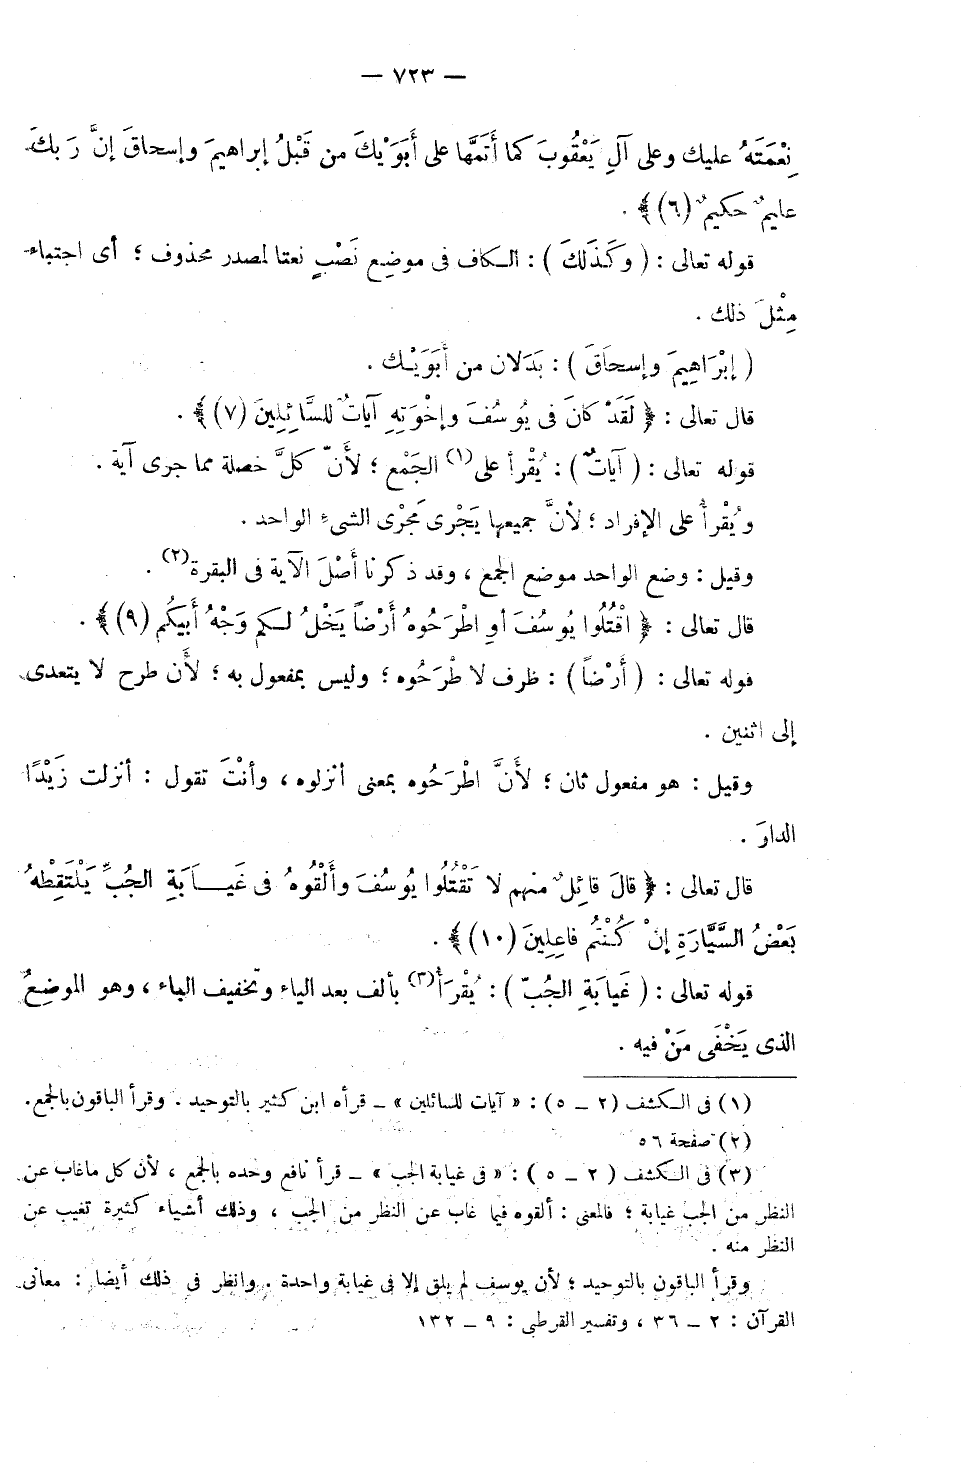 — ٧٢٣ —
نِعْمَتَهُ عليك وعلى آلِ يَعْقُوبَ كما أَتَمَّها على أَبَوَيْكَ من قَبْلُ إبراهيمَ وإسحاقَ إنَّ رَبكَ
عليمٌ حكيمٌ (٦) ﴾ .
قوله تعالى : ( وكَذَلكَ ) : الـكاف فى موضِع نَصْبٍ نعتا لمصدر محذوف ؛ أى اجتباء
مِثْلَ ذلك .
( إبْرَاهِيمَ وإسحاَقَ ) : بَدَلان من أَبَوَيْـك .
قال تعالى : ﴿ لَقَدْ كانَ فى يُوسُفَ وإخْوَتِهِ آيَاتٌ للسَّائِلِينَ (٧) ﴾ .
قوله تعالى : ( آيَاتٌ ) : يُقْرأ على(١) الجَمْع ؛ لأَنّ كلَّ خصلة مما جرى آية .
ويُقْرأ على الإفراد ؛ لأنَّ جميعها يَجْرى مَجْرَى الشىءِ الواحد .
وقيل : وضع الواحد موضع الجمع ، وقد ذكرنا أَصْلَ الآية فى البقرة(٢) .
قال تعالى : ﴿ اقْتُلُوا يُوسُفَ أوِ اطْرَحُوهُ أَرْضاً يَخْلُ لـكم وَجْهُ أَبيكُم (٩) ﴾ .
قوله تعالى : ( أَرْضاً ) : ظرف لاطْرَحُوه ؛ وليس بمفعول به ؛ لأَن طرح لا يتعدى
إلى اثنين .
وقيل : هو مفعول ثان ؛ لأَنَّ اطْرَحُوه بمعنى أنزلوه ، وأنْتَ تقول : أنزلت زَيْدًا
الدارَ .
قال تعالى : ﴿ قالَ قائِلٌ منهم لا تَقْتُلُوا يُوسُفَ وأَلْقُوهُ فى غَيـَابَةِ الجُبِّ يَلْتَقِطْهُ
بَعْضُ السَّيَّارَةِ إنْ كُنْتُم فاعِلِينَ (١٠) ﴾ .
قوله تعالى : ( غَيابَةِ الجُبّ ) : يُقْرَأ(٣) بألف بعد الياء وتخفيف الياء ، وهو الموضِعُ
الذى يَخْفَى مَنْ فيه .
(١) فى الـكشف (٢ ـ ٥) : « آيات للسائلين » ـ قرأه ابن كثير بالتوحيد . وقرأ الباقون بالجمع.
(٢) صفحة ٥٦
(٣) فى الـكشف ( ٢ ـ ٥ ) : « فى غيابة الجب » ـ قرأ نافع وحده بالجمع ، لأن كل ماغاب عن
النظر من الجب غيابة ؛ فالمعنى : ألقوه فيما غاب عن النظر من الجب ، وذلك أشياء كثيرة تغيب عن
النظر منه .
وقرأ الباقون بالتوحيد ؛ لأن يوسف لم يلق إلا فى غيابة واحدة . وانظر فى ذلك أيضا : معانى
القرآن : ٢ ـ ٣٦ ، وتفسير القرطبى : ٩ ـ ١٣٢